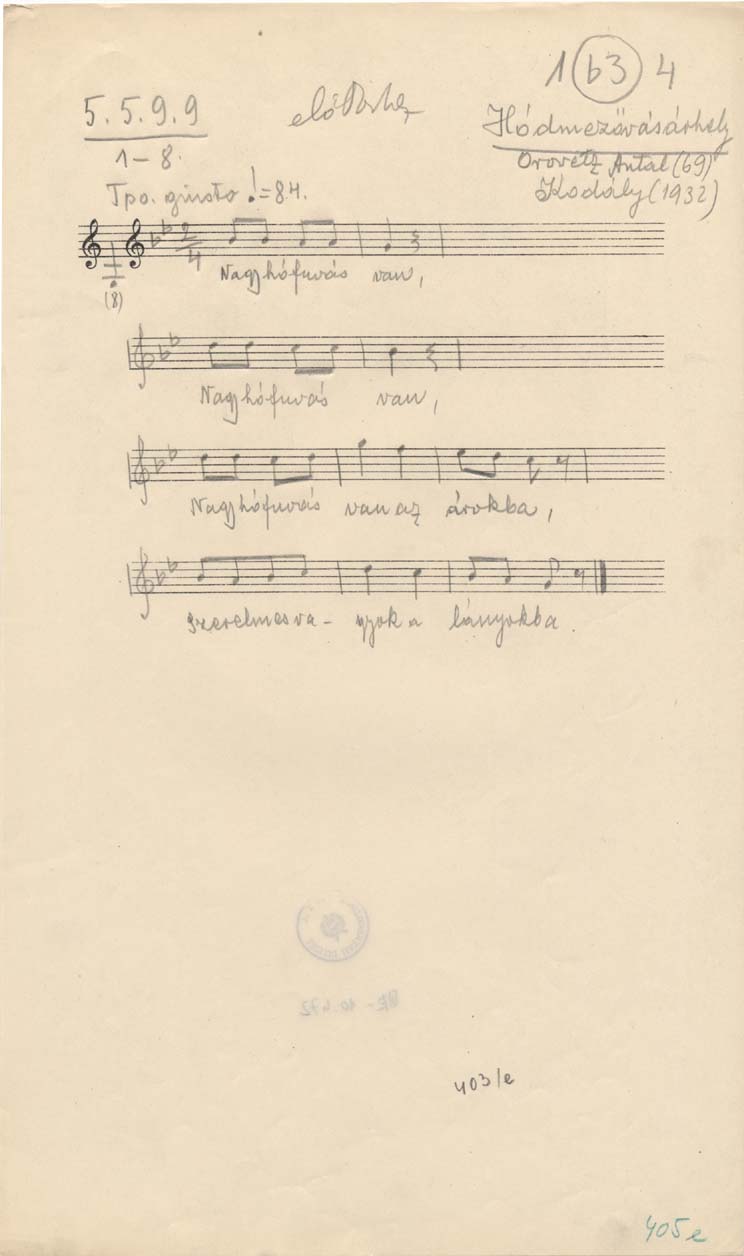 1 b3 4
5. 5. 9. 9
1-8.
Hódmezővásárhely
Orovetz Antal (69)
Kodály (1932)
Tpo. giusto = 84.
2
4
Nagy hófuvás van,
(8)
Nagy hófuvás van,
Nagy hófuvás van az árokba,
Szerelmes va- gyok a lányokba.
403/e
405 e